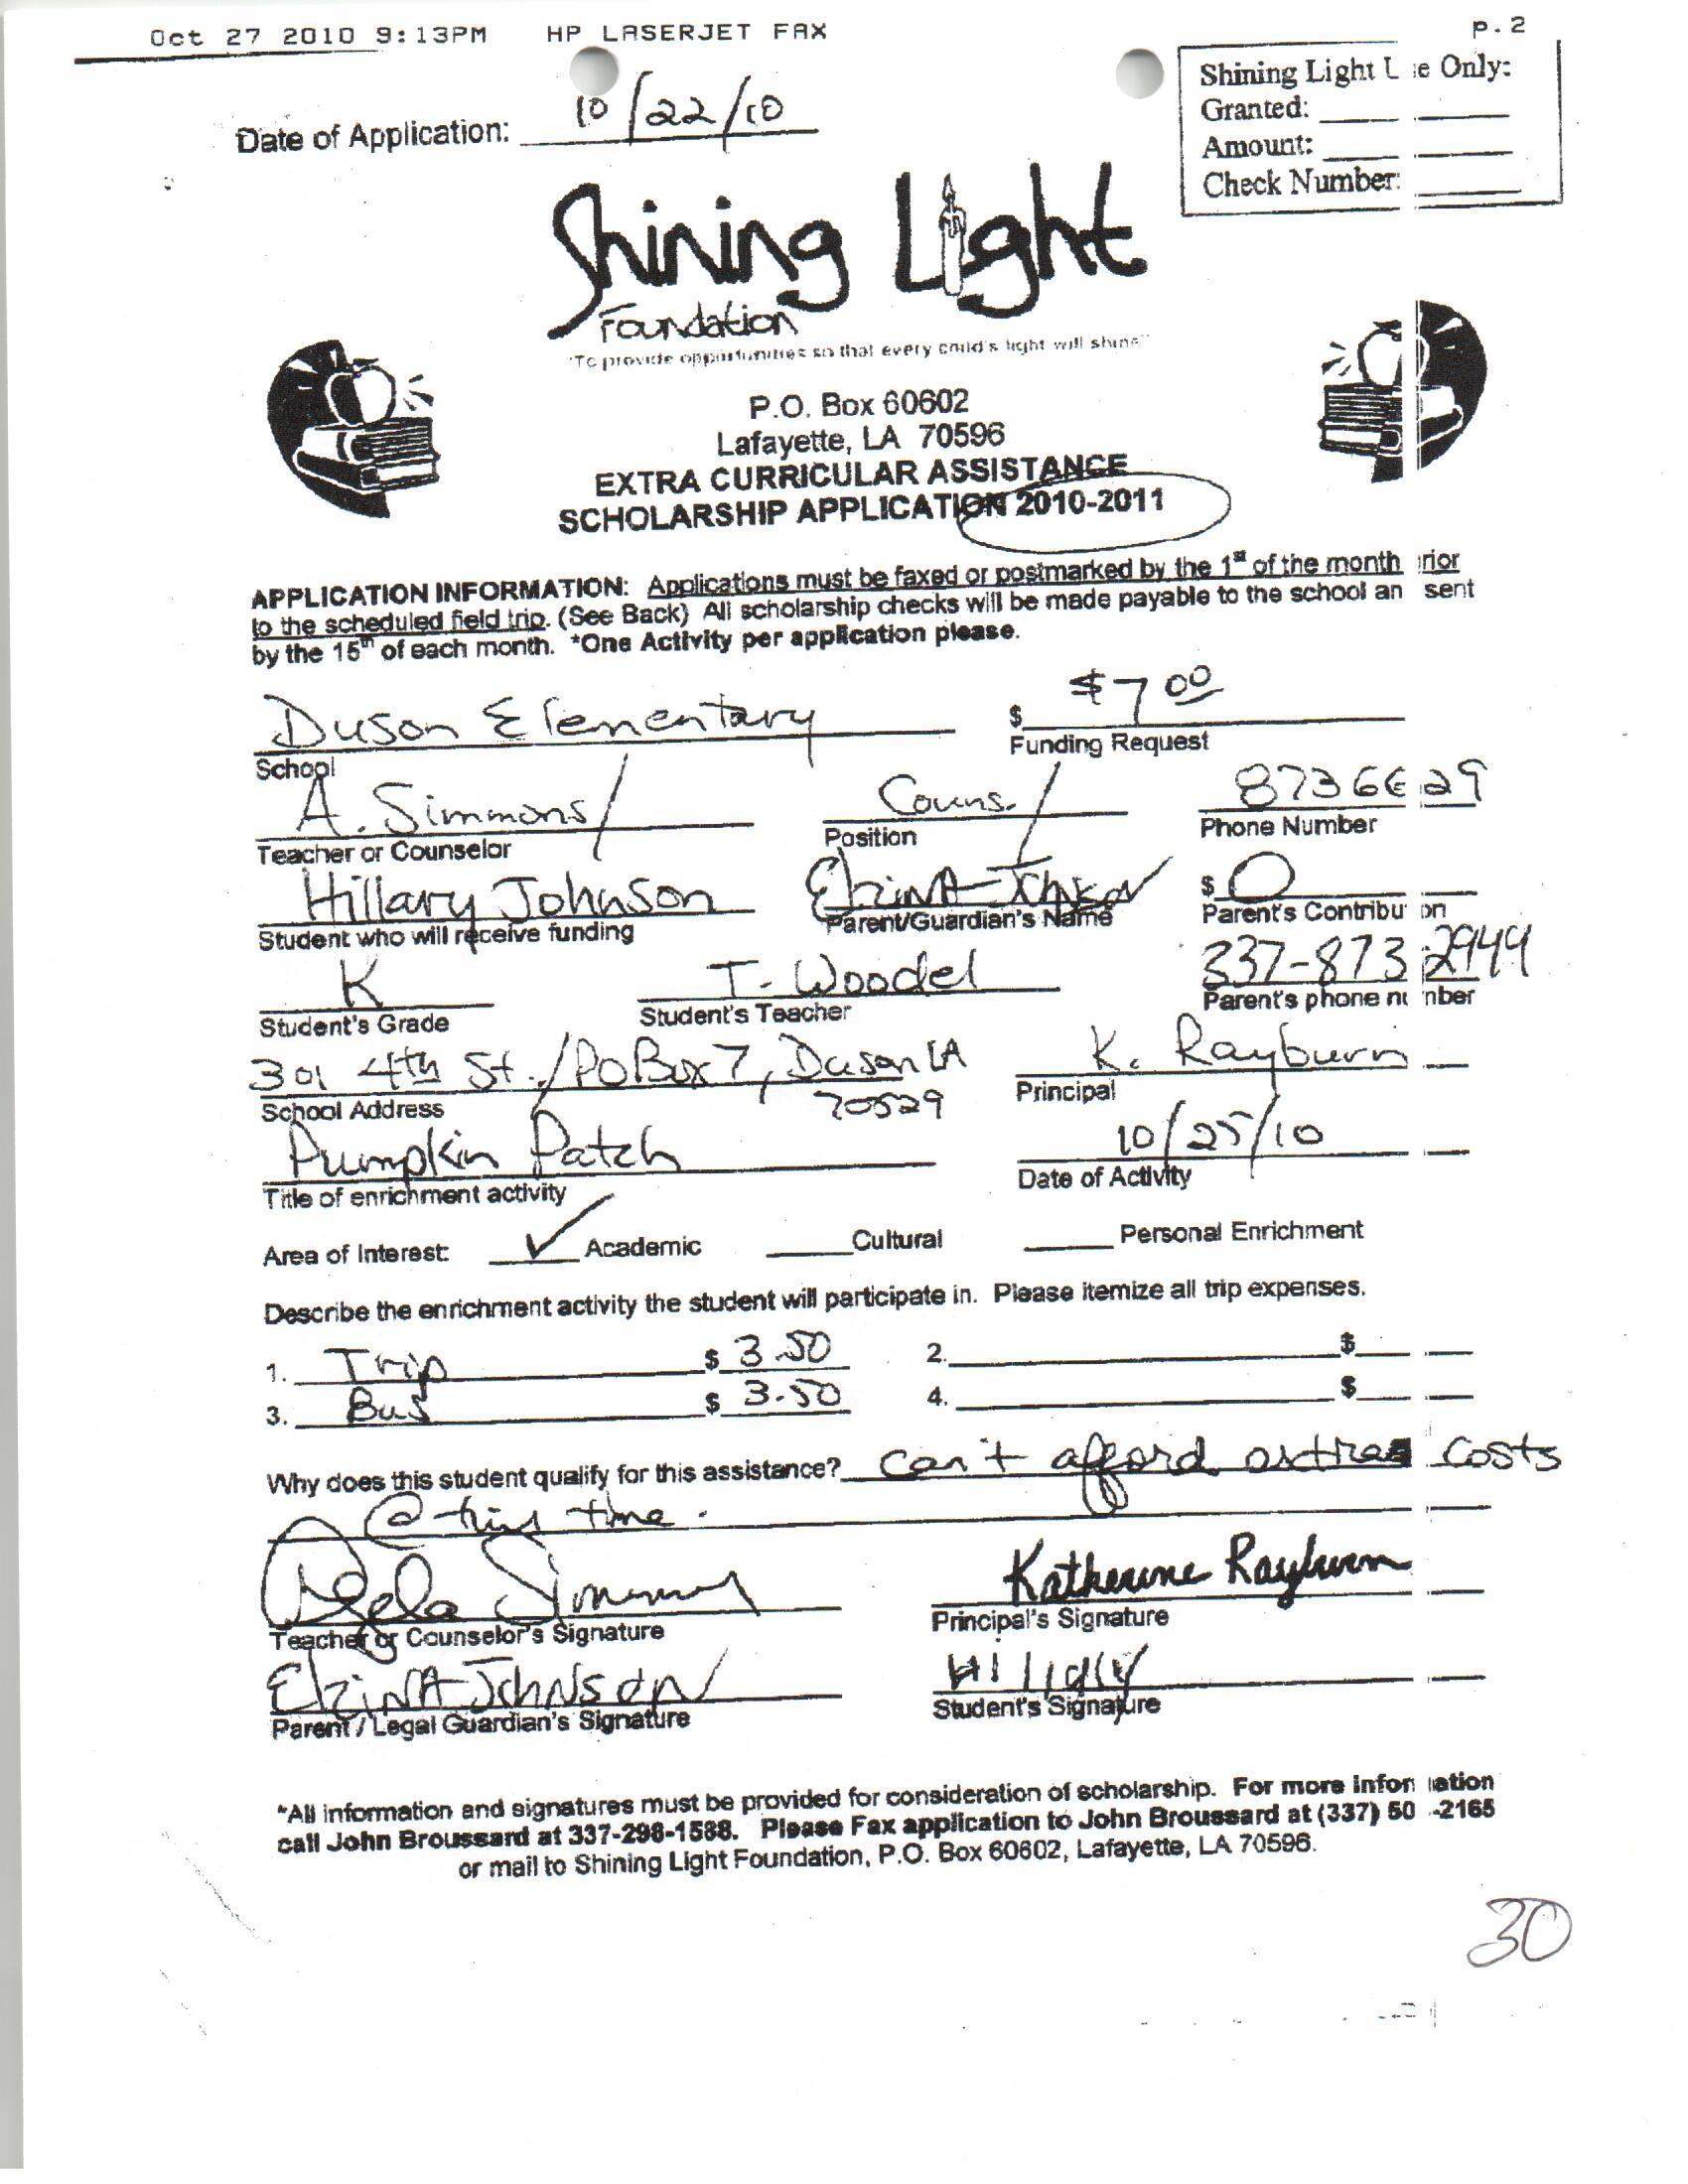 Oct 27 2010 9:13PM HP LASERJET FAX p.2
Shining Light U e Only:
Granted:
Amount:
Check Number:
Date of Application: 10/22/10
Shining Light
Foundation
"To provide opportunities so that every child's light will shine"
P.O. Box 60602
Lafayette, LA 70596
EXTRA CURRICULAR ASSISTANCE
SCHOLARSHIP APPLICATION 2010-2011
APPLICATION INFORMATION: Applications must be faxed or postmarked by the 1st of the month rior
to the scheduled field trip. (See Back) All scholarship checks will be made payable to the school an sent
by the 15th of each month. *One Activity per application please.
Duson Elementary $ $7 00
School Funding Request
A. Simmons Couns. 8736629
Teacher or Counselor Position Phone Number
Hillary Johnson Elzina Johnson $ 0
Student who will receive funding Parent/Guardian's Name Parent's Contribu on
K T. Woodel 337-873 2949
Student's Grade Student's Teacher Parent's phone nu nber
301 4th St./PO Box 7, Duson LA 70529 K. Rayburn
School Address Principal
Pumpkin Patch 10/25/10
Title of enrichment activity Date of Activity
Area of Interest: ✓ Academic Cultural Personal Enrichment
Describe the enrichment activity the student will participate in. Please itemize all trip expenses.
1. Trip $ 3.50 2. $
3. Bus $ 3.50 4. $
Why does this student qualify for this assistance? Can't afford costs
@ this time.
Angela Simmons Katherine Rayburn
Teacher or Counselor's Signature Principal's Signature
Elzina Johnson Hillary
Parent / Legal Guardian's Signature Student's Signature
*All information and signatures must be provided for consideration of scholarship. For more infor ation
call John Broussard at 337-298-1588. Please Fax application to John Broussard at (337) 50 -2165
or mail to Shining Light Foundation, P.O. Box 60602, Lafayette, LA 70596.
30